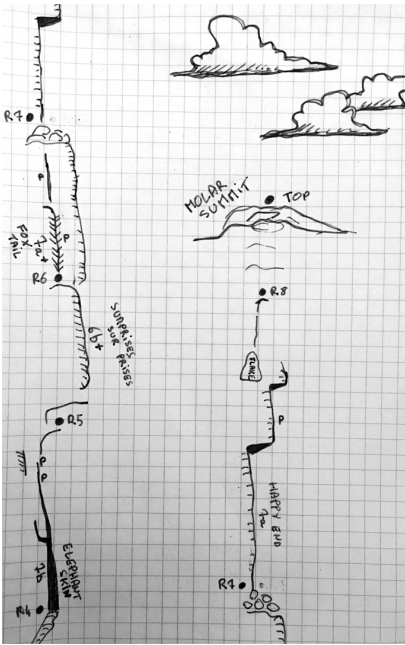 R7
P
P
FOX
TAIL
7a+
R6
SURPRISES
SUR PRISES
6b+
R5
P
P
7b
ELEPHANT
SKIN
R4
MOLAR
SUMMIT
TOP
R8
FLAKE
P
HAPPY END
7a
R7